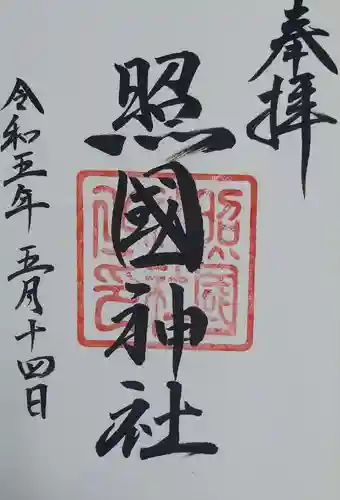 奉拝
照國神社
照國神社之印
令和五年 五月十四日